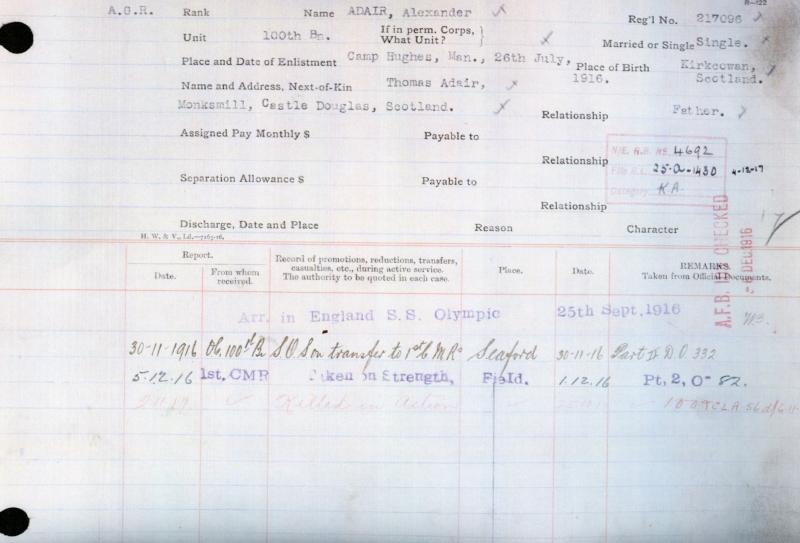 R-122
A.G.R. Rank Name ADAIR, Alexander Reg'l No. 217096
Unit 100th Bn. If in perm. Corps, What Unit? Married or Single Single.
Place and Date of Enlistment Camp Hughes, Man., 26th July, 1916. Place of Birth Kirkcowan, Scotland.
Name and Address, Next-of-Kin Thomas Adair,
Monksmill, Castle Douglas, Scotland. Relationship Father.
Assigned Pay Monthly $ Payable to
Relationship
N/E. R.B. No. 4692
File R.L. 25-a-1430 4-12-17
Category K.A.
Separation Allowance $ Payable to
Relationship
Discharge, Date and Place Reason Character
H. W. & V., Ld.—7165-16.
A.F.B. 103 CHECKED
DEC 1916
Report. Date. From whom received. Record of promotions, reductions, transfers, casualties, etc., during active service. The authority to be quoted in each case. Place. Date. REMARKS. Taken from Official Documents.
Arr. in England S.S. Olympic 25th Sept, 1916
30-11-1916 Oc. 100th Bn S.O.S on transfer to 1st C.M.R. Seaford 30-11-16 Part II D.O 332
5.12.16 1st. CMR Taken on Strength, Field. 1.12.16 Pt, 2, O- 82.
Killed in Action